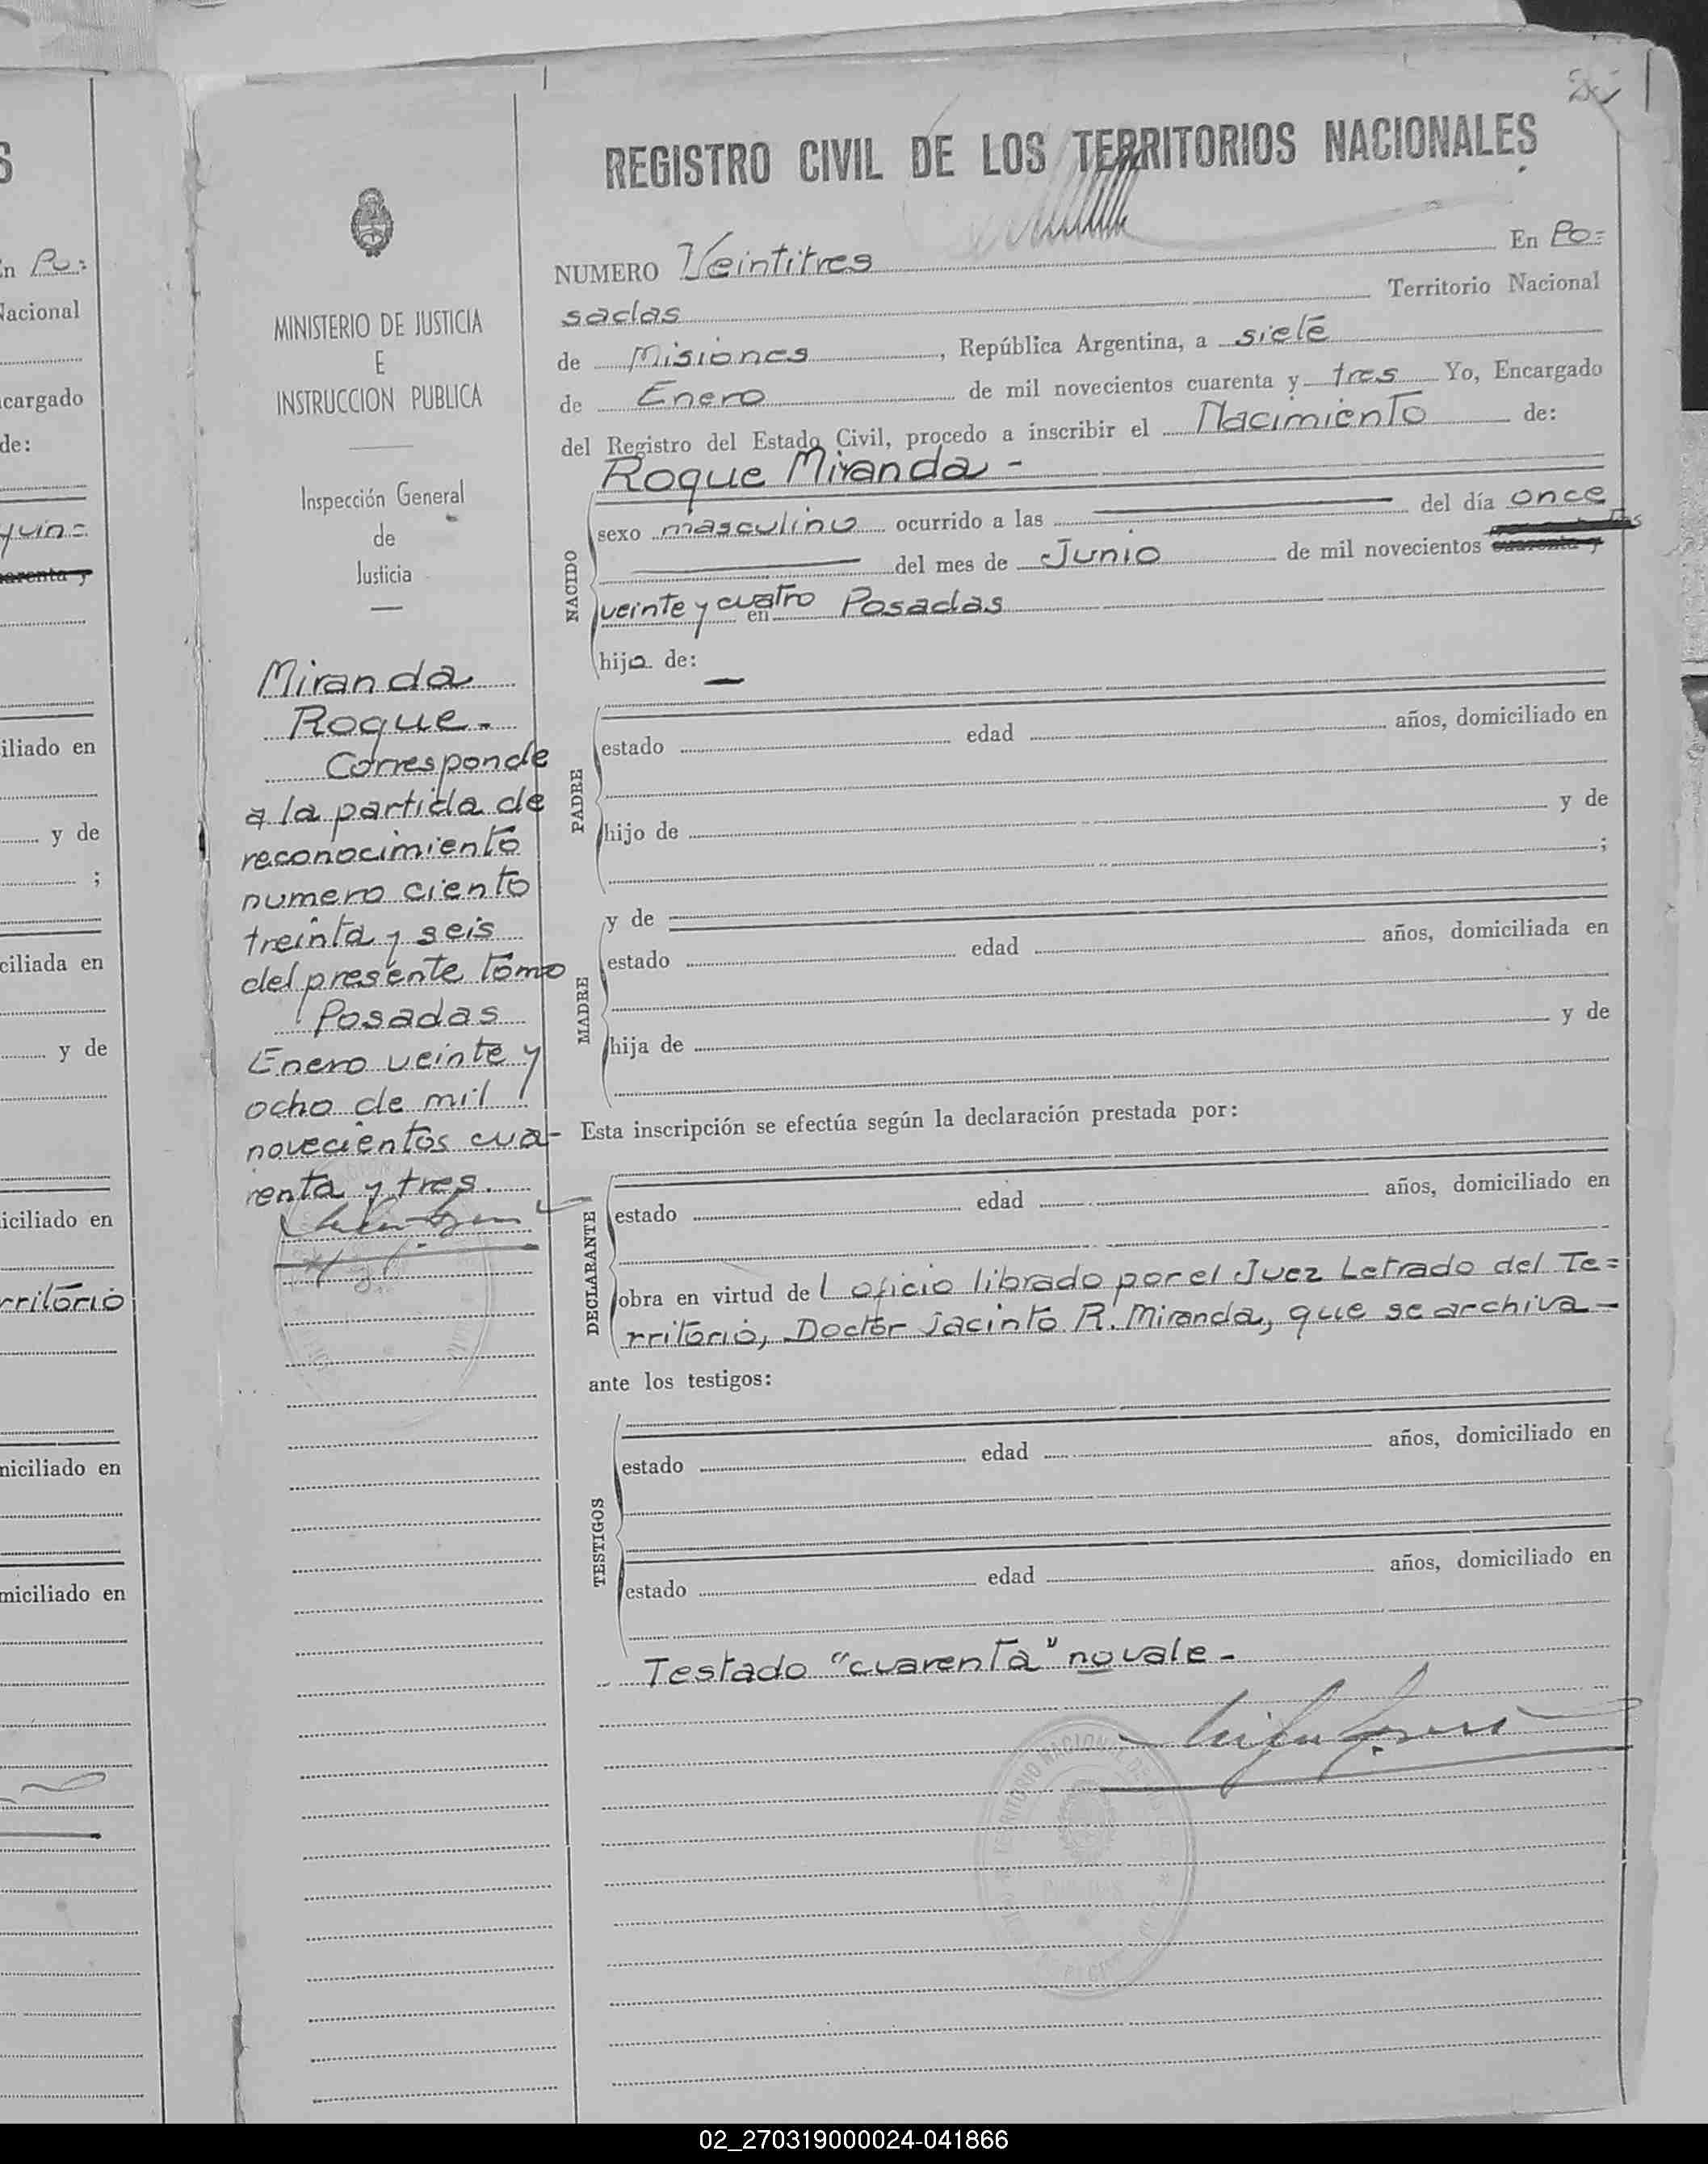 REGISTRO CIVIL DE LOS TERRITORIOS NACIONALES
MINISTERIO DE JUSTICIA
E
INSTRUCCION PUBLICA
Inspección General
de
Justicia
Miranda
Roque.-
Corresponde
a la partida de
reconocimiento
numero ciento
treinta y seis
del presente tomo
Posadas
Enero veinte y
ocho de mil
novecientos cua-
renta y tres.
NUMERO Veintitres En Po=
sadas Territorio Nacional
de Misiones, República Argentina, a siete
de Enero de mil novecientos cuarenta y tres Yo, Encargado
del Registro del Estado Civil, procedo a inscribir el Nacimiento de:
Roque Miranda -
NACIDO
sexo masculino ocurrido a las del día once
del mes de Junio de mil novecientos cuarenta y
veinte y cuatro en Posadas
hijo de:
PADRE
estado edad años, domiciliado en
hijo de y de
;
MADRE
y de
estado edad años, domiciliada en
hija de y de
Esta inscripción se efectúa según la declaración prestada por:
DECLARANTE
estado edad años, domiciliado en
obra en virtud de l oficio librado por el Juez Letrado del Te=
rritorio, Doctor Jacinto R. Miranda, que se archiva -
ante los testigos:
TESTIGOS
estado edad años, domiciliado en
estado edad años, domiciliado en
Testado "cuarenta" no vale -
S
En Po:
Nacional
cargado
de:
iliado en
y de
;
ciliada en
y de
iciliado en
rritorio
niciliado en
miciliado en
02_270319000024-041866